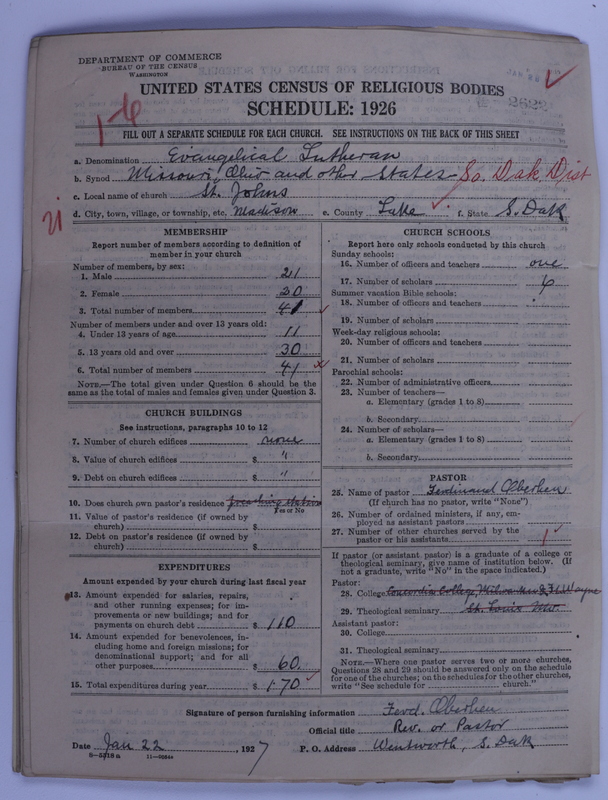 DEPARTMENT OF COMMERCE
BUREAU OF THE CENSUS
WASHINGTON
UNITED STATES CENSUS OF RELIGIOUS BODIES
SCHEDULE: 1926
1-6
FILL OUT A SEPARATE SCHEDULE FOR EACH CHURCH. SEE INSTRUCTIONS ON THE BACK OF THIS SHEET
a. Denomination Evangelical Lutheran
b. Synod Missouri, Ohio and other States So. Dak Dist
c. Local name of church St. Johns
d. City, town, village, or township, etc. Madison e. County Lake f. State S. Dak
MEMBERSHIP
Report number of members according to definition of
member in your church
Number of members, by sex:
1. Male 21
2. Female 20
3. Total number of members 41
Number of members under and over 13 years old:
4. Under 13 years of age 11
5. 13 years old and over 30
6. Total number of members 41
NOTE.—The total given under Question 6 should be the
same as the total of males and females given under Question 3.
CHURCH BUILDINGS
See instructions, paragraphs 10 to 12
7. Number of church edifices none
8. Value of church edifices $ "
9. Debt on church edifices $ "
10. Does church own pastor's residence preaching station
Yes or No
11. Value of pastor's residence (if owned by
church) $
12. Debt on pastor's residence (if owned by
church) $
EXPENDITURES
Amount expended by your church during last fiscal year
13. Amount expended for salaries, repairs,
and other running expenses; for im-
provements or new buildings; and for
payments on church debt $ 110
14. Amount expended for benevolences, in-
cluding home and foreign missions; for
denominational support; and for all
other purposes $ 60
15. Total expenditures during year $ 170
CHURCH SCHOOLS
Report here only schools conducted by this church
Sunday schools:
16. Number of officers and teachers one
17. Number of scholars 6
Summer vacation Bible schools:
18. Number of officers and teachers
19. Number of scholars
Week-day religious schools:
20. Number of officers and teachers
21. Number of scholars
Parochial schools:
22. Number of administrative officers
23. Number of teachers—
a. Elementary (grades 1 to 8)
b. Secondary
24. Number of scholars—
a. Elementary (grades 1 to 8)
b. Secondary
PASTOR
25. Name of pastor Ferdinand Oberheu
(If church has no pastor, write "None")
26. Number of ordained ministers, if any, em-
ployed as assistant pastors
27. Number of other churches served by the
pastor or his assistants 1
If pastor (or assistant pastor) is a graduate of a college or
theological seminary, give name of institution below. (If
not a graduate, write "No" in the space indicated.)
Pastor:
28. College Concordia College, Milwaukee & Ft. Wayne
29. Theological seminary St. Louis Mo.
Assistant pastor:
30. College
31. Theological seminary
NOTE.—Where one pastor serves two or more churches,
Questions 28 and 29 should be answered only on the schedule
for one of the churches; on the schedules for the other churches,
write "See schedule for church."
Signature of person furnishing information Ferd. Oberheu
Official title Rev. or Pastor
Date Jan 22, 1927 P. O. Address Wentworth, S. Dak